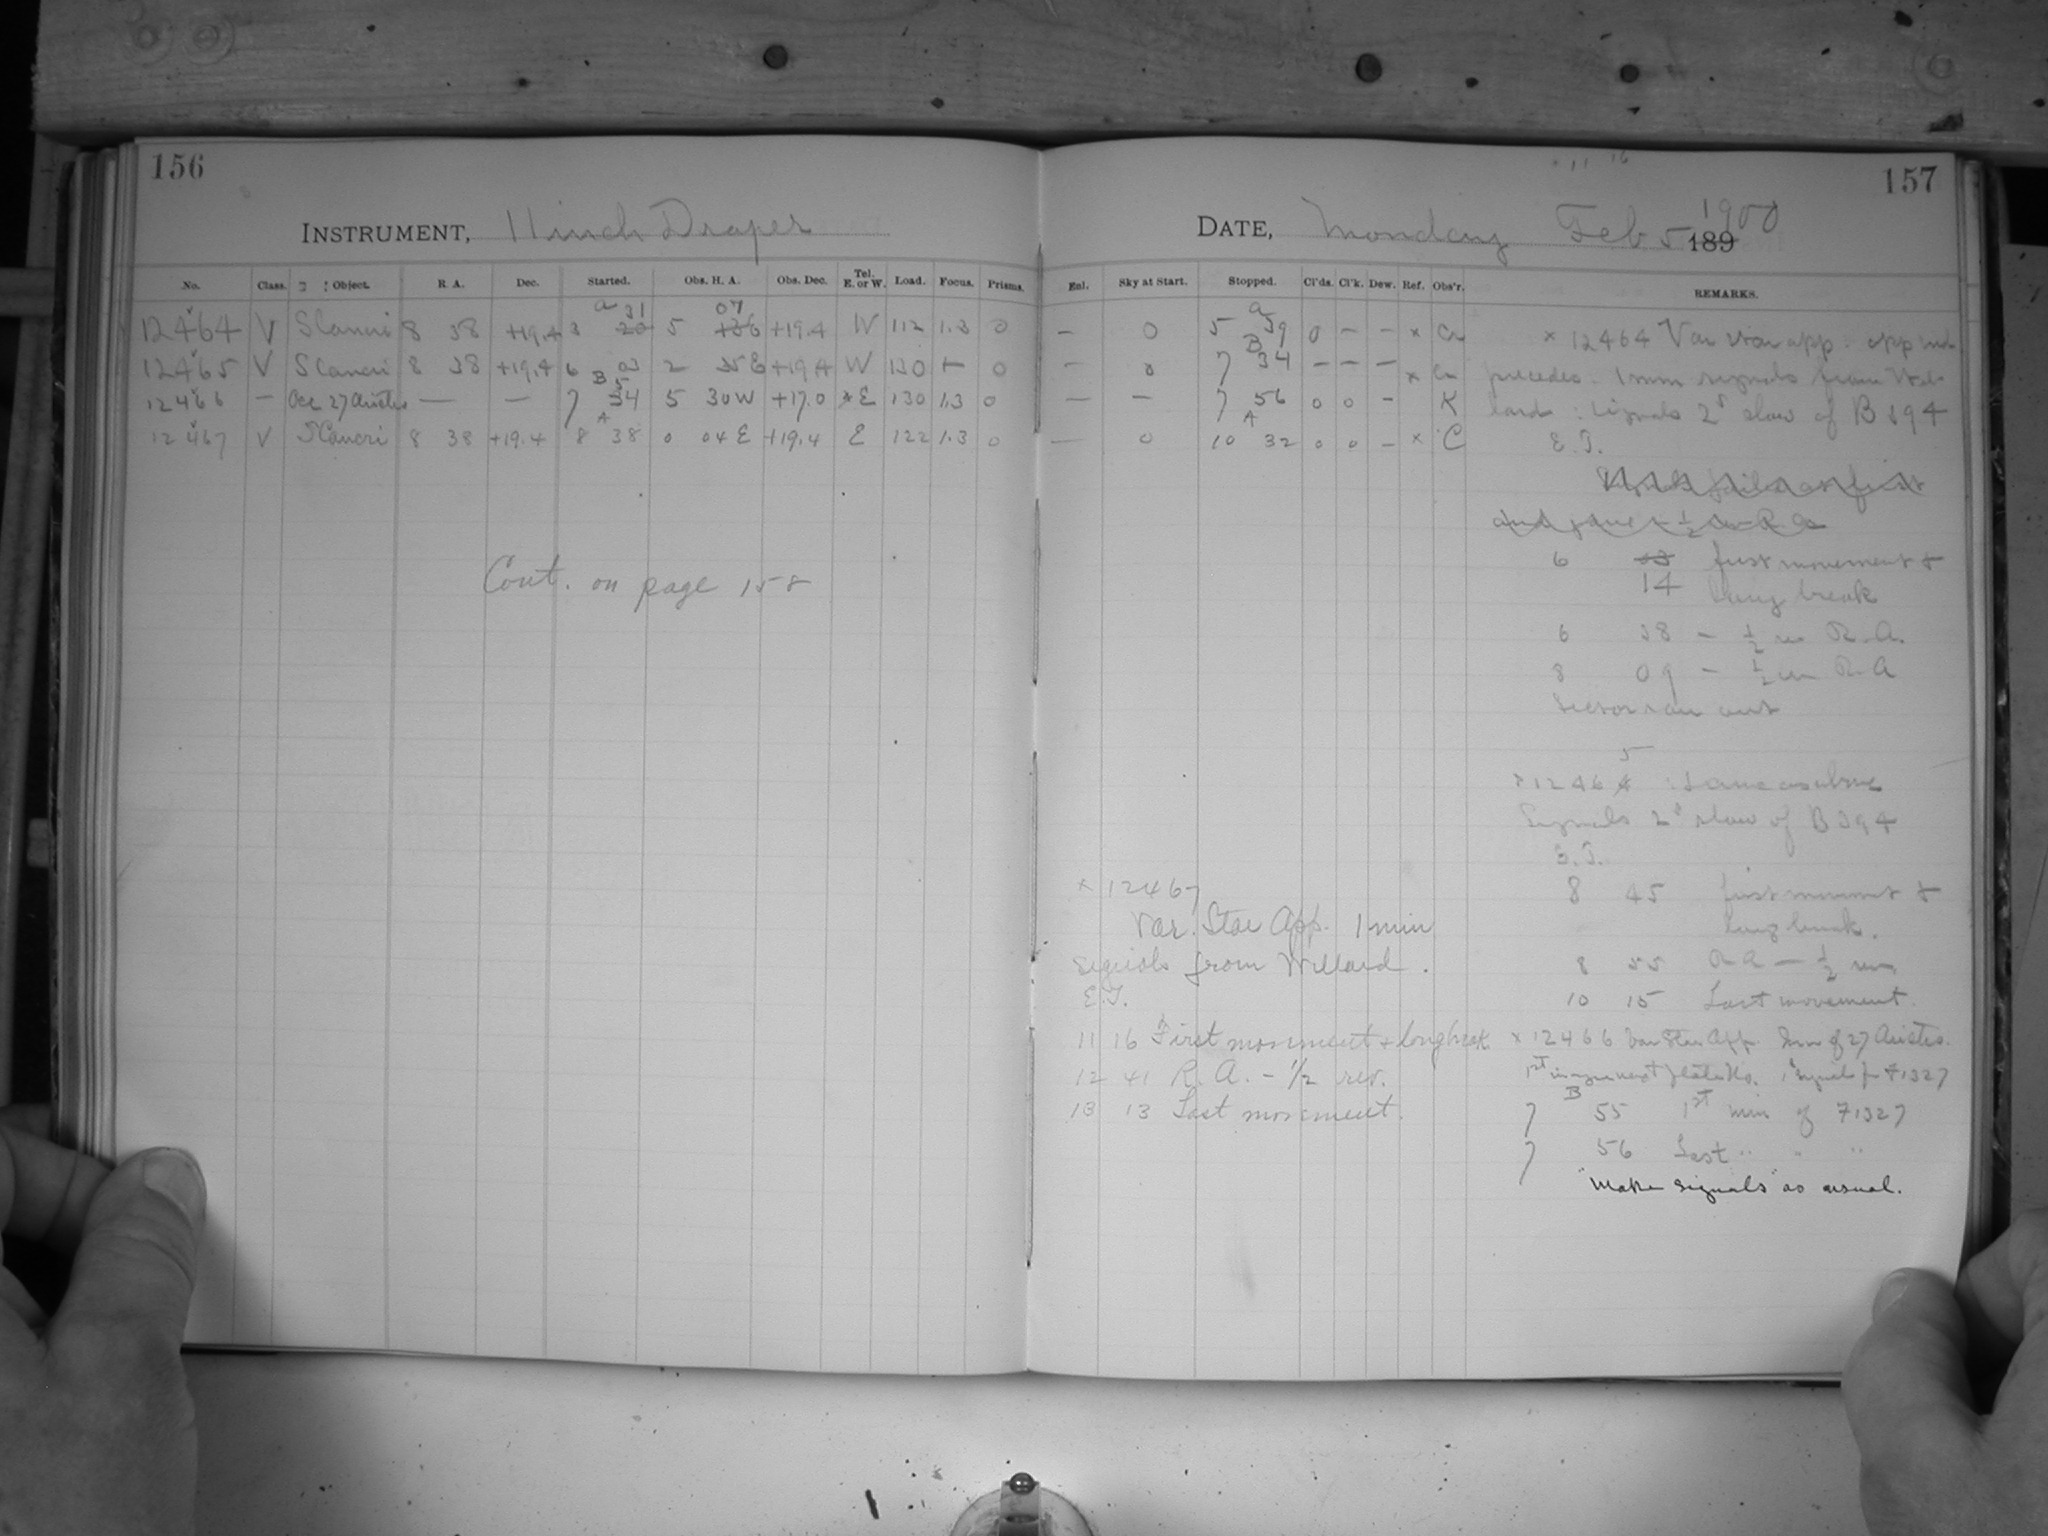 156
INSTRUMENT, 11 inch Draper
No. Class. Object. R. A. Dec. Started. Obs. H. A. Obs. Dec. Tel. E. or W. Load. Focus. Prisms.
a 31 07
12464 V S Cancri 8 38 +19.4 3 20 5 +36 +19.4 W 112 1.3 0
12465 V S Cancri 8 38 +19.4 6 03 2 35 E +19.4 W 130 0
12466 — Occ 27 Arietis — — B 7 34 5 30 W +17.0 × E 130 1.3 0
12467 V S Cancri 8 38 +19.4 A 8 38 0 04 E +19.4 E 122 1.3 0
Cont. on page 158
11 16
157
DATE, Monday Feb 5 1900 189
Enl. Sky at Start. Stopped. Cl'ds. Cl'k. Dew. Ref. Obs'r. REMARKS.
— 0 5 a 59 0 — — ×
— 0 7 B 34 — — — ×
— — 7 56 0 0 — K
— 0 10 A 32 0 0 — × C
× 12464 Var star app.
precedes. 1 min signals from Wil-
lard: Signals 2s slow of B 394
E. T.
6 03 first movement &
14 long break
6 38 — ½ rev R. A.
8 09 — ½ rev R. A
Sector ran out
× 12464 5 : Same as above
Signals 2s slow of B 394
E. T.
8 45 first movement &
long break.
8 55 R A — ½ rev
10 15 Last movement.
× 12466 Var Star App. Imm of 27 Arietis.
B
7 55 1st min of 71327
7 56 Last " " "
"Make signals" as usual.
× 12467
Var. Star App. 1 min
signals from Willard.
E. T.
11 16 First movement + long break
12 41 R. A. — 1/2 rev.
13 13 Last movement.